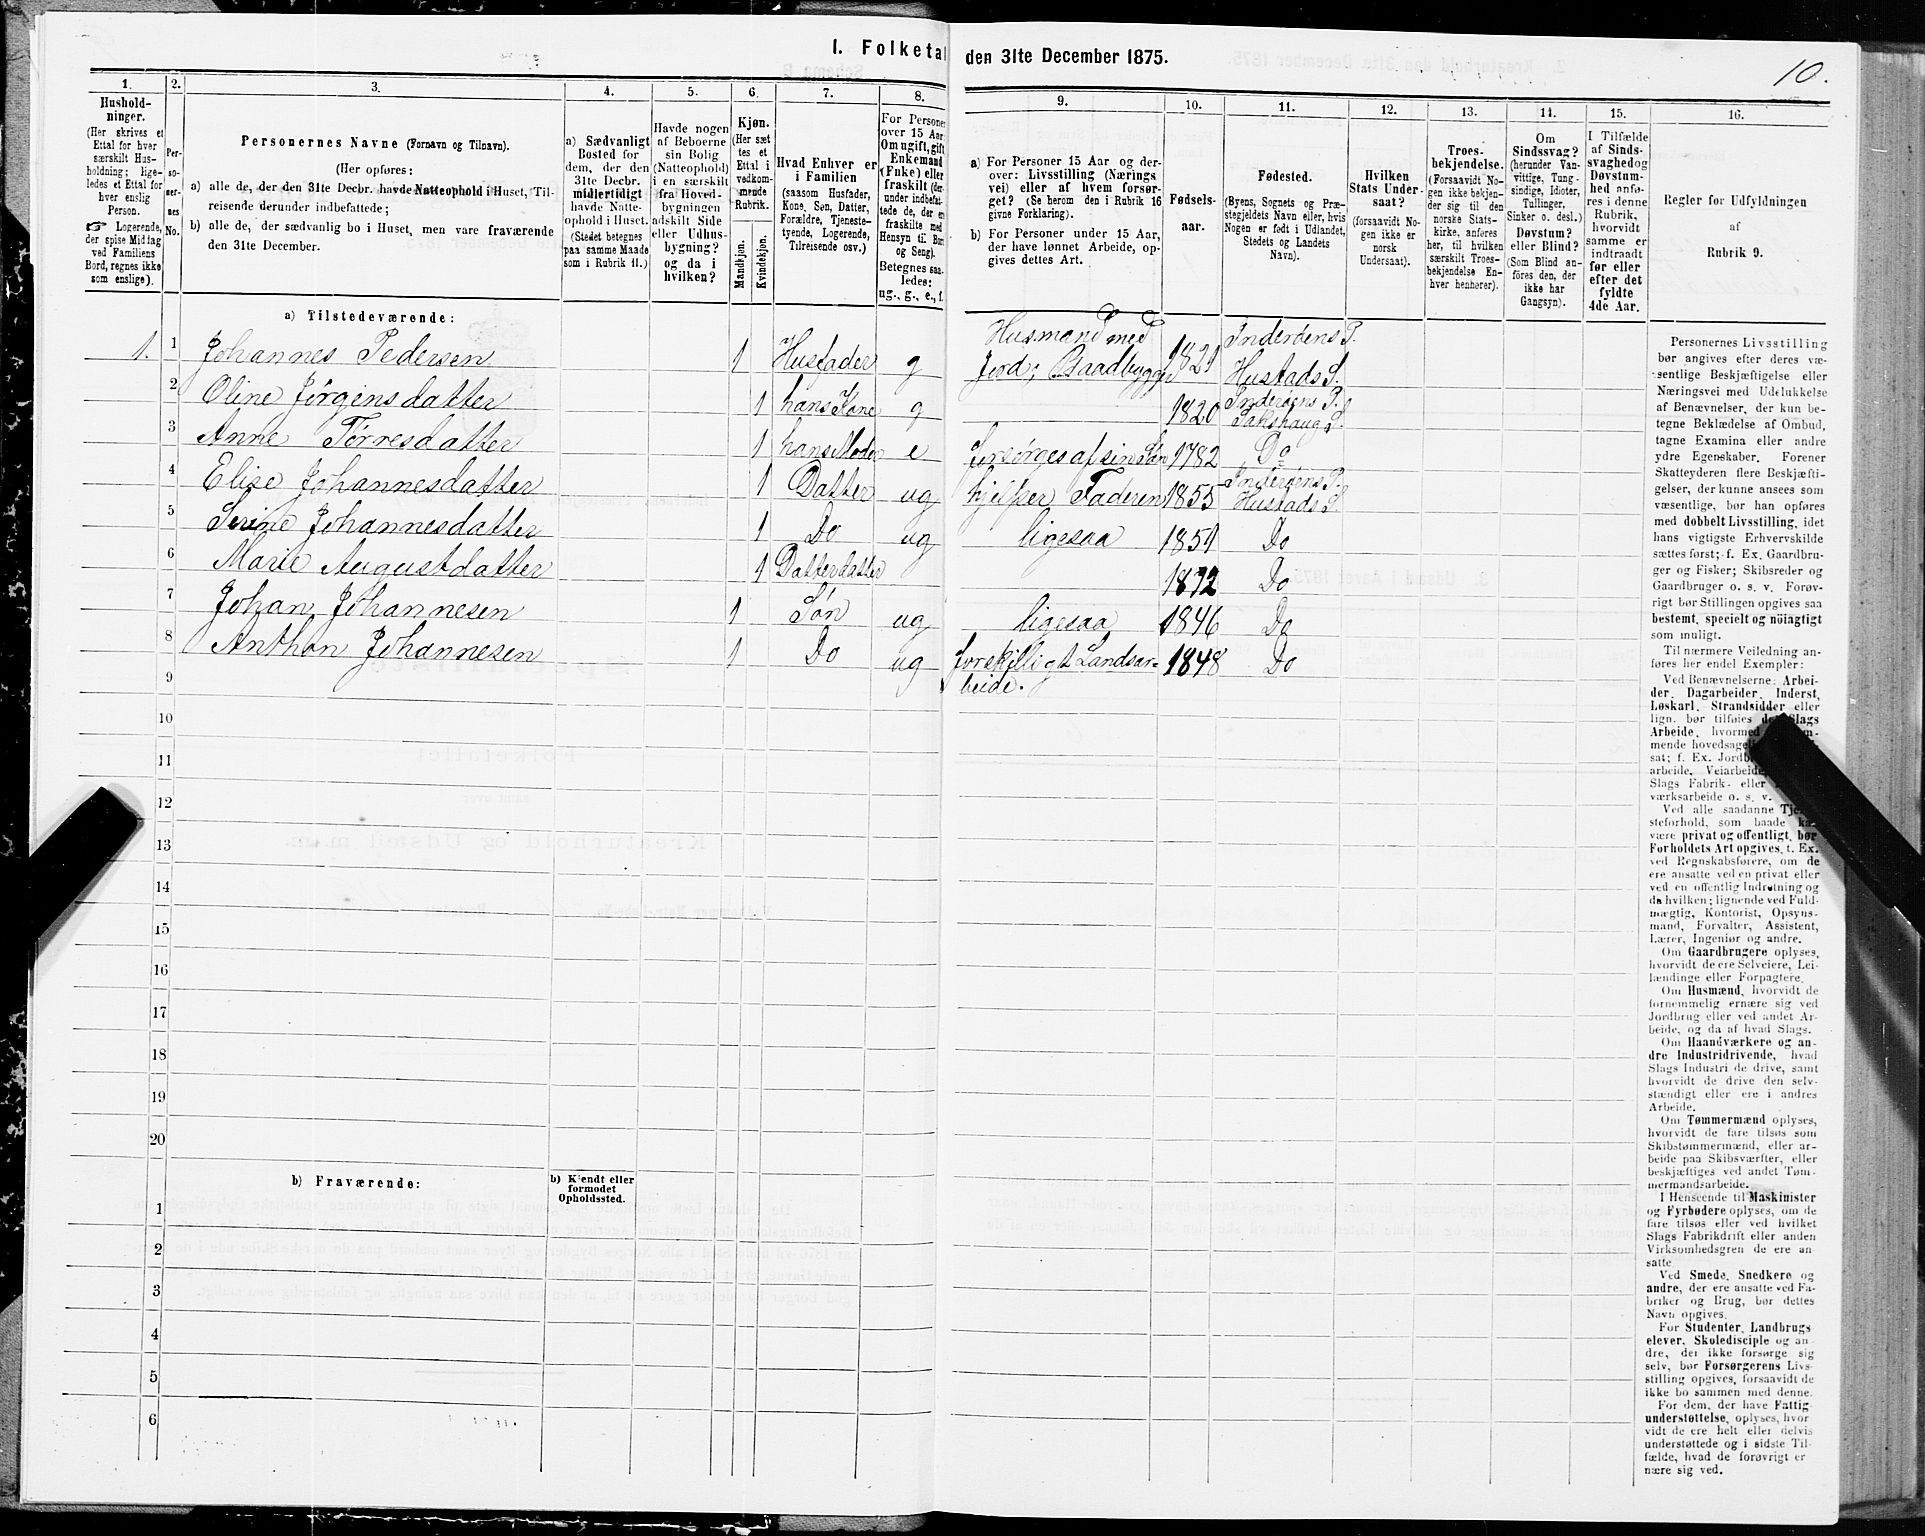 I. Folketal den 31te December 1875.
10.
1.
Husholdninger.
(Her skrives et Ettal for hver særskilt Husholdning; ligeledes et Ettal for hver enslig Person.
☛ Logerende, der spise Middag ved Familiens Bord, regnes ikke som enslige).
2.
Personernes No.
3.
Personernes Navne (Fornavn og Tilnavn).
(Her opføres:
a) alle de, der den 31te Decbr. havde Natteophold i Huset, Tilreisende derunder indbefattede;
b) alle de, der sædvanlig bo i Huset, men vare fraværende den 31te December.
4.
a) Sædvanligt Bosted for dem, der den 31te Decbr. midlertidigt havde Natteophold i Huset. (Stedet betegnes paa samme Maade som i Rubrik 11.)
5.
Havde nogen af Beboerne sin Bolig (Natteophold) i en særskilt fra Hovedbygningen adskilt Side eller Udhusbygning? og da i hvilken?
6.
Kjøn.
(Her sættes et Ettal i vedkommende Rubrik.
Mandkjøn.
Kvindekjøn.
7.
Hvad Enhver er i Familien
(saasom Husfader, Kone, Søn, Datter, Forældre, Tjenestetyende, Logerende, Tilreisende osv.)
8.
For Personer over 15 Aar: Om ugift, gift, Enkemand (Enke) eller fraskilt
Betegnes saaledes: ug., g., e., f.
9.
a) For Personer 15 Aar og derover: Livsstilling (Næringsvei) eller af hvem forsørget? (Se herom den i Rubrik 16 givne Forklaring).
b) For Personer under 15 Aar, der have lønnet Arbeide, opgives dettes Art.
10.
Fødselsaar.
11.
Fødested.
(Byens, Sognets og Præstegjeldets Navn eller, hvis Nogen er født i Udlandet, Stedets og Landets Navn).
12.
Hvilken Stats Undersaat?
(forsaavidt Nogen ikke er norsk Undersaat).
13.
Troesbekjendelse.
(Forsaavidt Nogen ikke bekjender sig til den norske Statskirke, anføres her, til hvilken særskilt Troesbekjendelse Enhver henhører).
14.
Om Sindssvag? (herunder Vanvittige, Tungsindige, Idioter, Tullinger, Sinker o. desl.) Døvstum? eller Blind? (Som Blind anføres den, der ikke har Gangsyn).
15.
I Tilfælde af Sindssvaghed og Døvstumhed anføres i denne Rubrik, hvorvidt samme er indtraadt før eller efter det fyldte 4de Aar.
16.
Regler for Udfyldningen
af
Rubrik 9.
a) Tilstedeværende:
1. 1 Johannes Pedersen 1 Husfader g Husmand med Jord; Baadbygger 1821 Inderøens P. Hustads S.
2 Oline Jørgensdatter 1 hans Kone g 1820 Inderøens P. Sakshaug S.
3 Anne Tørresdatter 1 hans Moder e forsørges af sin Søn 1782 Do
4 Elise Johannesdatter 1 Datter ug hjelper Faderen 1855 Inderøens P. Hustads S.
5 Serine Johannesdatter 1 Do ug ligesaa 1851 Do
6 Marie Augustdatter 1 Datterdatter 1872 Do
7 Johan Johannesen 1 Søn ug ligesaa 1846 Do
8 Anthon Johannesen 1 Do ug forskjelligt Landsarbeide. 1848 Do
9
10
11
12
13
14
15
16
17
18
19
20
b) Fraværende:
b) Kjendt eller formodet Opholdssted.
1
2
3
4
5
6
Personernes Livsstilling
bør angives efter deres væsentlige
Beskjæftigelse eller
Næringsvei med Udelukkelse
af Benævnelser, der kun betegne
Beklædelse af Ombud,
tagne Examina eller andre
ydre Egenskaber. Forener
Skatteyderen flere Beskjæftigelser,
der kunne ansees som
væsentlige, bør han opføres
med dobbelt Livsstilling, idet
hans vigtigste Erhvervskilde
sættes først; f. Ex. Gaardbruger
og Fisker; Skibsreder og
Gaardbruger o. s. v. Forøvrigt
bør Stillingen opgives saa
bestemt, specielt og nöiagtigt
som muligt.
Til nærmere Veiledning anføres
her endel Exempler:
Ved Benævnelserne: Arbeider,
Dagarbeider, Inderst,
Løskarl, Strandsidder eller
lign. bør tilføies det Slags
Arbeide, hvormed
o. s. v.
Ved alle saadanne Tjenesteforhold,
som baade kan
være privat og offentligt, bør
Forholdets Art opgives, f. Ex.
ved Regnskabsførere, om de
ere ansatte ved en privat eller
ved en offentlig Indretning og
da hvilken; lignende ved Fuldmægtig,
Kontorist, Opsynsmand,
Forvalter, Assistent,
Lærer, Ingeniør og andre.
Om Gaardbrugere oplyses,
hvorvidt de ere Selveiere, Leilændinge
eller Forpagtere.
Om Husmænd, hvorvidt de
fornemmelig ernære sig ved
Jordbrug eller ved andet Arbeide,
og da af hvad Slags.
Om Haandværkere og andre
Industridrivende, hvad
Slags Industri de drive, samt
hvorvidt de drive den selvstændigt
eller ere i andres
Arbeide.
Om Tømmermænd oplyses,
hvorvidt de fare tilsøs som
Skibstømmermænd, eller arbeide
paa Skibsværfter, eller
beskjæftiges ved andet Tømmermandsarbeide.
I Henseende til Maskinister
og Fyrbødere oplyses, om de
fare tilsøs eller ved hvilket
Slags Fabrikdrift eller anden
Virksomhedsgren de ere ansatte.
Ved Smede, Snedkere og
andre, der ere ansatte ved Fabriker
og Brug, bør dettes
Navn opgives.
For Studenter, Landbrugselever,
Skoledisciple og andre,
der ikke forsørge sig
selv, bør Forsørgerens Livsstilling
opgives, forsaavidt de
ikke bo sammen med denne.
For dem, der have Fattigunderstøttelse,
oplyses, hvorvidt
de ere helt eller delvis
understøttede og i sidste Tilfælde,
hvad de forøvrigt ernære
sig ved.